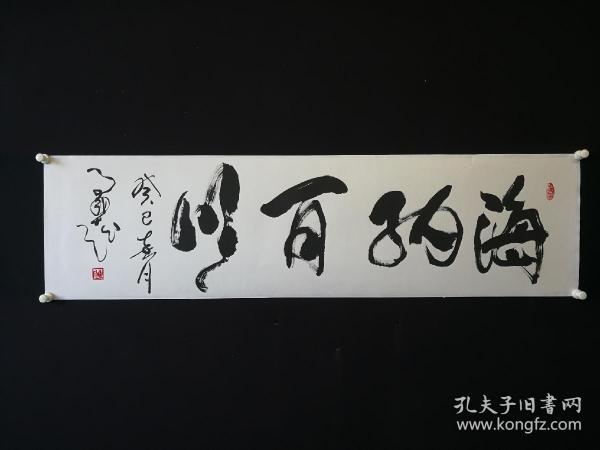 海纳百川
癸巳春月
孔夫子旧書网
www.kongfz.com